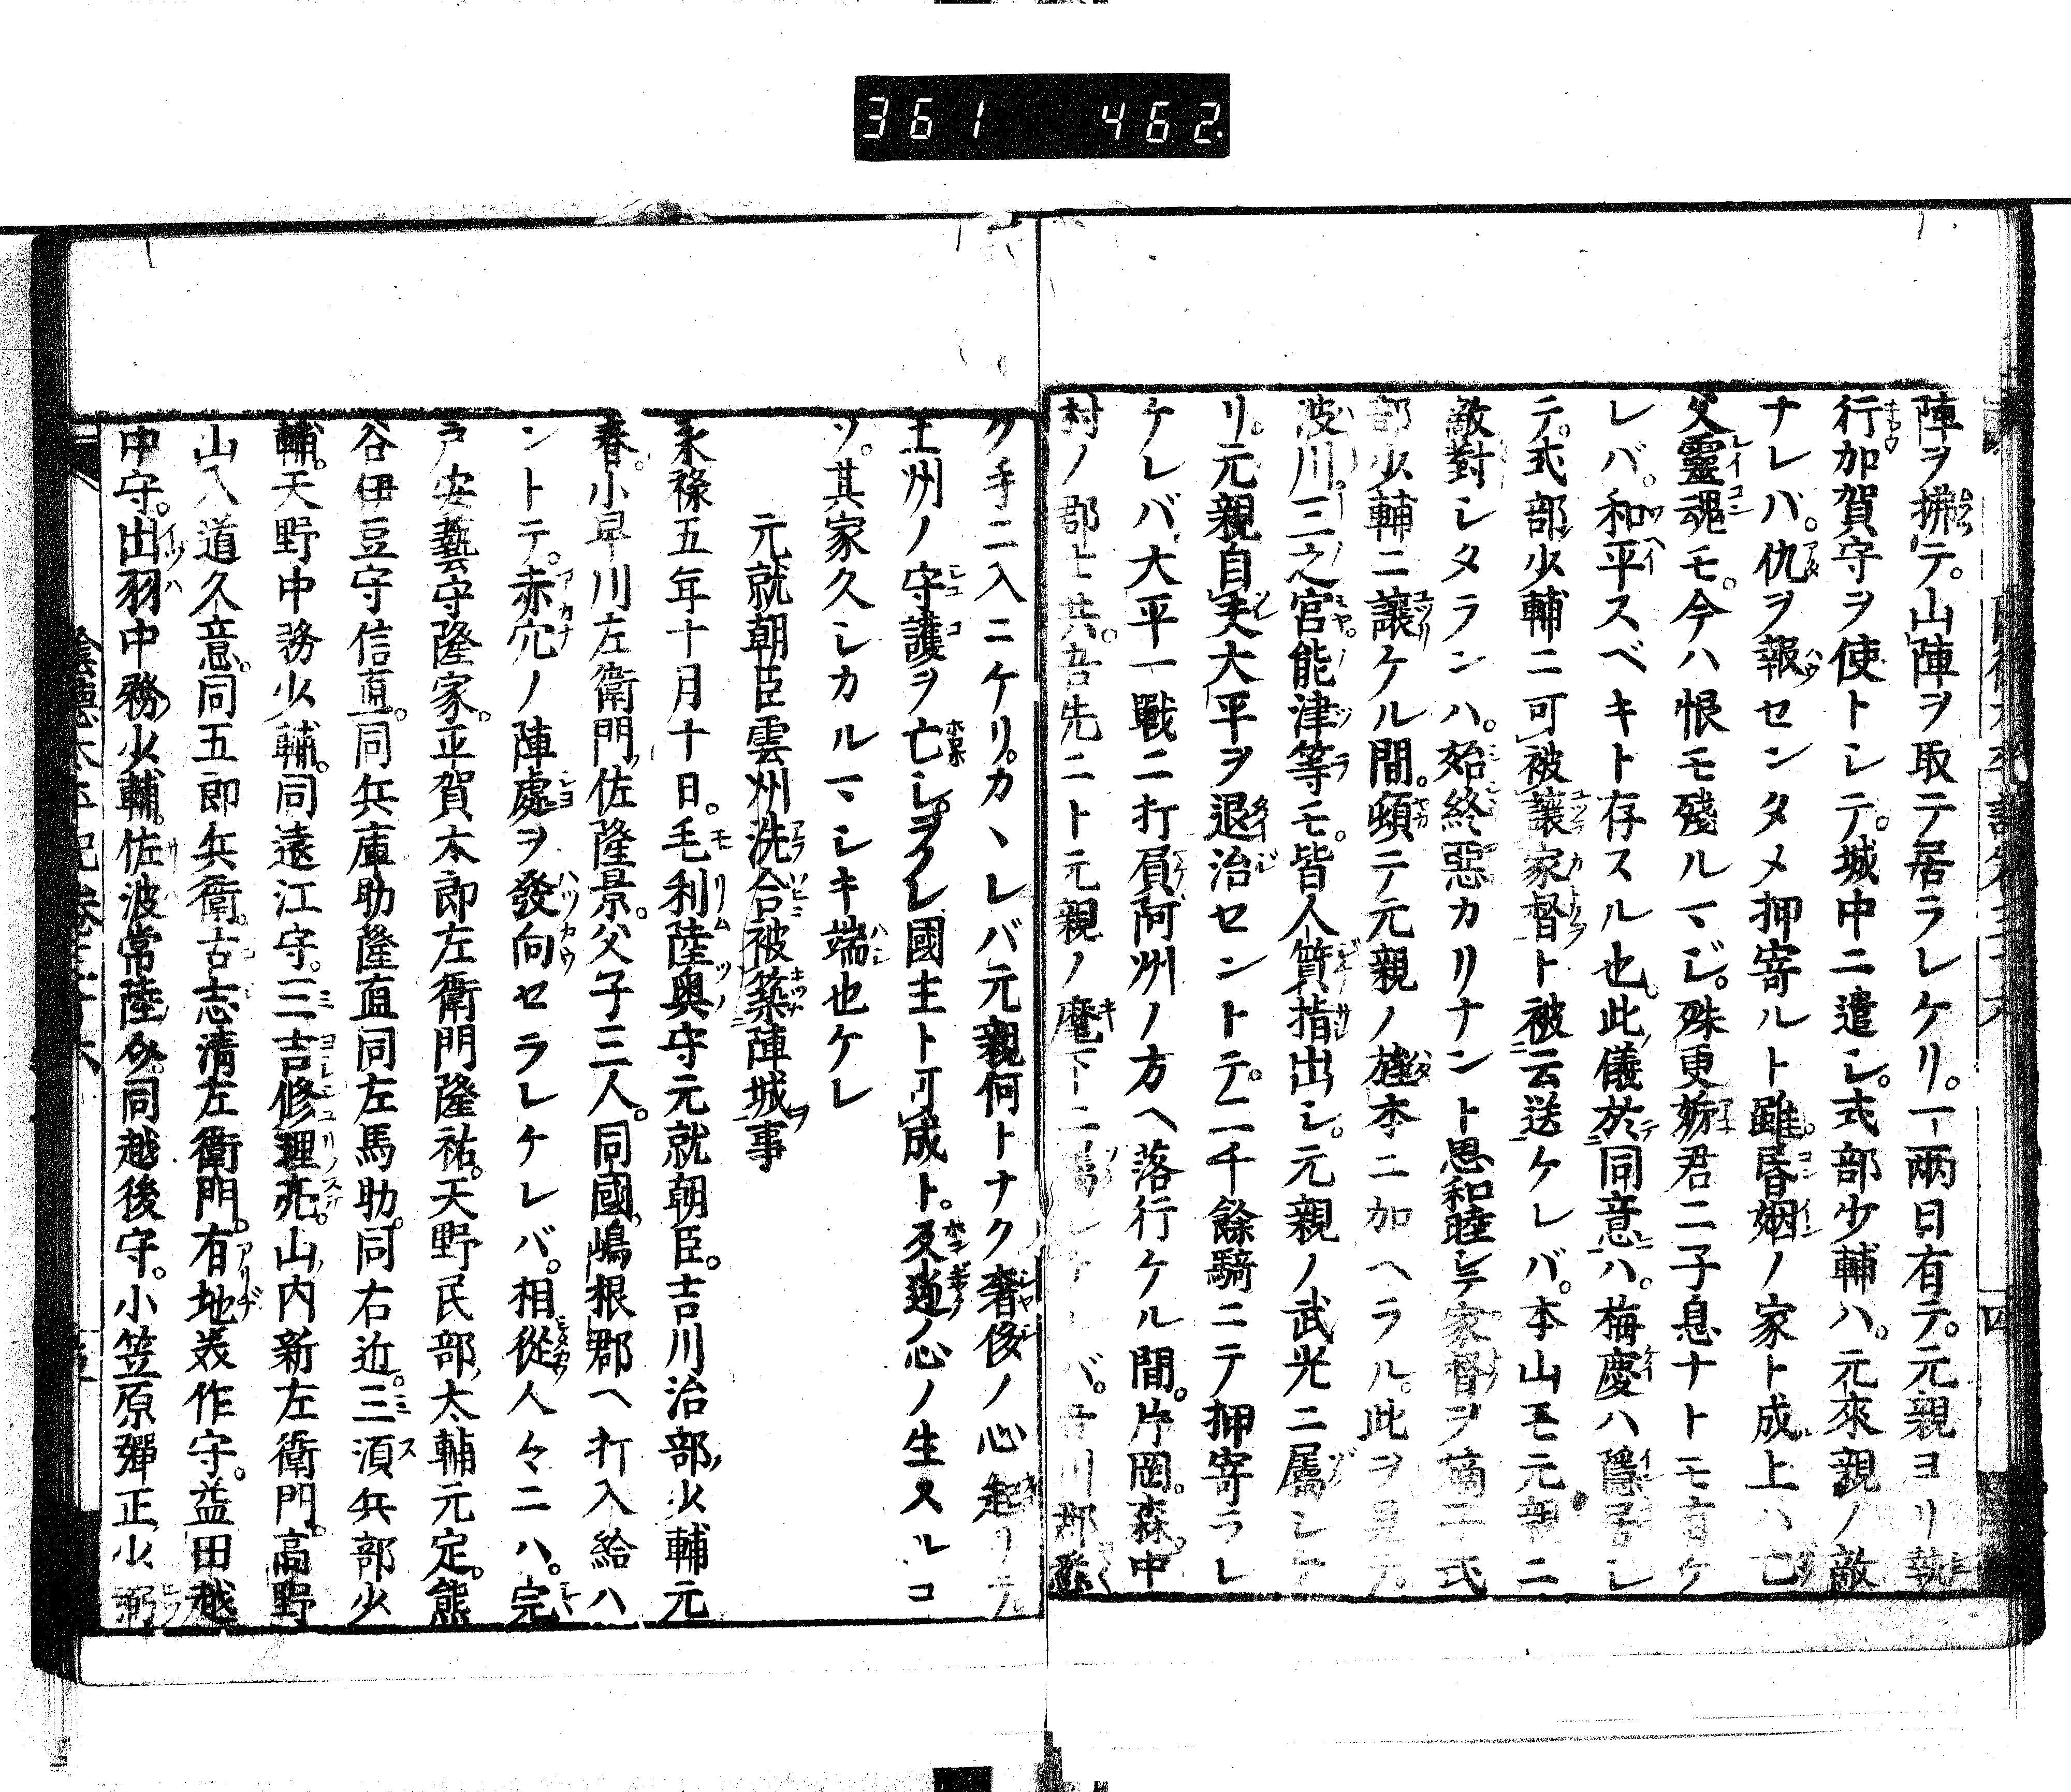 361 462.
陣ヲ拂テ。山陣ヲ取テ居ラレケリ。一両日有テ。元親ヨリ執
行加賀守ヲ使トシテ。城中ニ遣シ。式部少輔ハ。元來親ノ敵
ナレバ。仇ヲ報センタメ押寄ルト雖。昏姻ノ家ト成上ハ亡
父靈魂モ。今ハ恨モ殘ルマジ。殊更妨君ニ子息ナトモ有ケ
レバ。和平スベキト存スル也。此儀於同意ハ。梅慶ハ隱居シ
テ。式部少輔ニ可被讓家督ト被云送ケレバ。本山モ元親ニ
敵對シタランハ。始終惡カリナント思和睦シテ家督ヲ嫡子式
部少輔ニ讓ケル間。頓テ元親ノ旗本ニ加ヘラル。此ヲ見テ。
波川。三之宮能津等モ。皆人質指出シ。元親ノ武光ニ屬シケ
リ。元親自夫大平ヲ退治セントテ。二千餘騎ニテ押寄ラレ
ケレバ。大平一戰ニ打負阿州ノ方ヘ落行ケル間。片岡。森。中
村ノ郡士共。吾先ニト元親ノ麾下ニ屬シケレバ。吉川郡悉
ク手ニ入ニケリ。カヽレバ元親何トナク奢侈ノ心起リテ
土州ノ守護ヲ亡シ。ヲノレ國主ト可成ト。反逆ノ心ノ生スルコ
ソ。其家久シカルマシキ端也ケレ
元就朝臣雲州洗合被築陣城事
永祿五年十月十日。毛利陸奧守元就朝臣。吉川治部少輔元
春。小早川左衞門佐隆景。父子三人。同國嶋根郡ヘ打入給ハ
ントテ。赤穴ノ陣處ヲ發向セラレケレバ。相從人々ニハ。宍
戸安藝守隆家。平賀太郎左衞門隆祐。天野民部太輔元定。熊
谷伊豆守信直。同兵庫助隆直同左馬助。同右近。三須兵部少
輔。天野中務少輔。同遠江守。三吉修理亮。山内新左衞門。高野
山入道久意。同五郎兵衞。古志淸左衞門。有地美作守。益田越
中守。出羽中務少輔。佐波常陸介。同越後守。小笠原彈正少弼
陰德太平記卷三十六